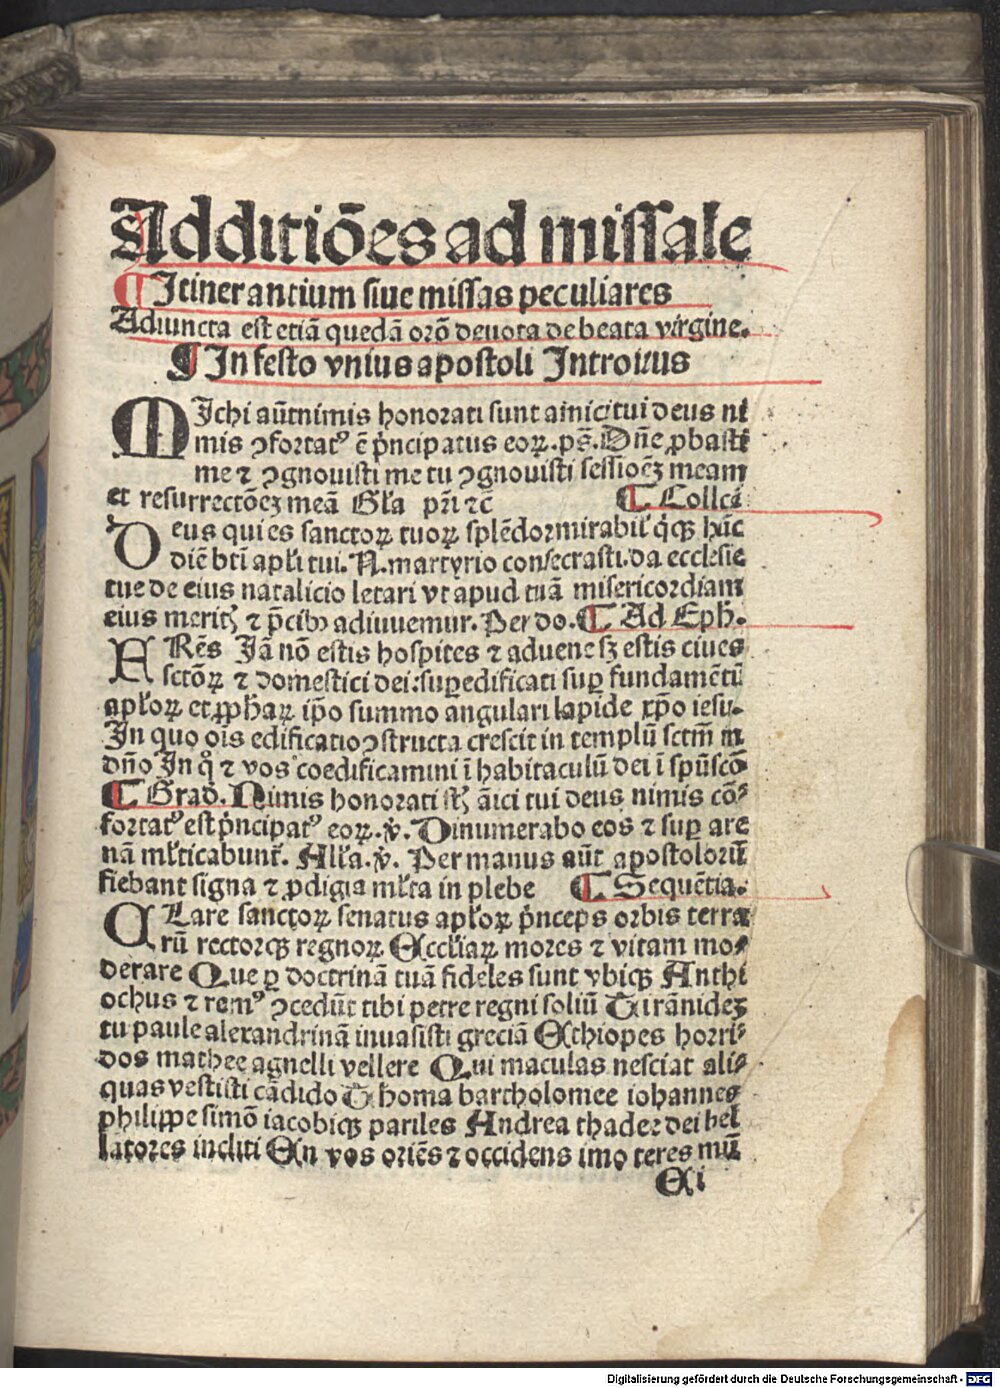 Additiões ad missale
¶ Itinerantium siue missas peculiares
Adiuncta est etiā quedā orō deuota de beata virgine.
¶ In festo vnius apostoli Introitus
MIchi aūt nimis honorati sunt amici tui deus ni
mis ꝯfortatꝰ ē p̄ncipatus eoꝝ. ps̄. Dn̄e ꝓbasti
me ⁊ ꝯgnouisti me tu ꝯgnouisti sessiōeꝫ meam
et resurrectōeꝫ meā Gl̄a pr̄i ⁊c̄ ¶ Collcā
Deus qui es sanctoꝝ tuoꝝ splēdor mirabil̄ q̇ꝗꝫ hāc
diē bt̄i apl̄i tui. N. martyrio consecrasti. da ecclesie
tue de eius natalicio letari vt apud tuā misericordiam
eius meritꝭ ⁊ p̄cibꝫ adiuuemur. Per do. ¶ Ad Eph.
FRēs Iā nō estis hospites ⁊ aduene sꝫ estis ciues
sctōꝝ ⁊ domestici dei: suꝑedificati suꝑ fundamētū
apl̄oꝝ et ꝓph̄aꝝ ip̄o summo angulari lapide xp̄o iesu.
In quo oīs edificatio ꝯstructa crescit in templū sctm̄ in
dn̄o In qͦ ⁊ vos coedificamini ī habitaculū dei ī spūscō
¶ Grad̄. Nimis honorati st̄ āici tui deus nimis cō⸗
fortatꝰ est p̄ncipatꝰ eoꝝ. ꝟ. Dinumerabo eos ⁊ suꝑ are
nā ml̄ticabunt̄. All̄a. ꝟ. Per manus aūt apostolorū
fiebant signa ⁊ ꝓdigia ml̄ta in plebe ¶ Sequētia.
CLare sanctoꝝ senatus apl̄oꝝ p̄nceps orbis terra
rū rectorqꝫ regnoꝝ Eccl̄iaꝝ mores ⁊ vitam mo⸗
derare Que ꝑ doctrinā tuā fideles sunt vbiqꝫ Anthi
ochus ⁊ remꝰ ꝯcedūt tibi petre regni soliū Tirānideꝫ
tu paule alexandrinā inuasisti greciā Ethiopes horri⸗
dos mathee agnelli vellere Qui maculas nesciat ali⸗
quas vestisti cādido Thoma bartholomee iohannes
philippe simō iacobiqꝫ pariles Andrea thadee dei bel
latores incliti En vos oriēs ⁊ occidens imo teres mū
Ei
Digitalisierung gefördert durch die Deutsche Forschungsgemeinschaft - DFG